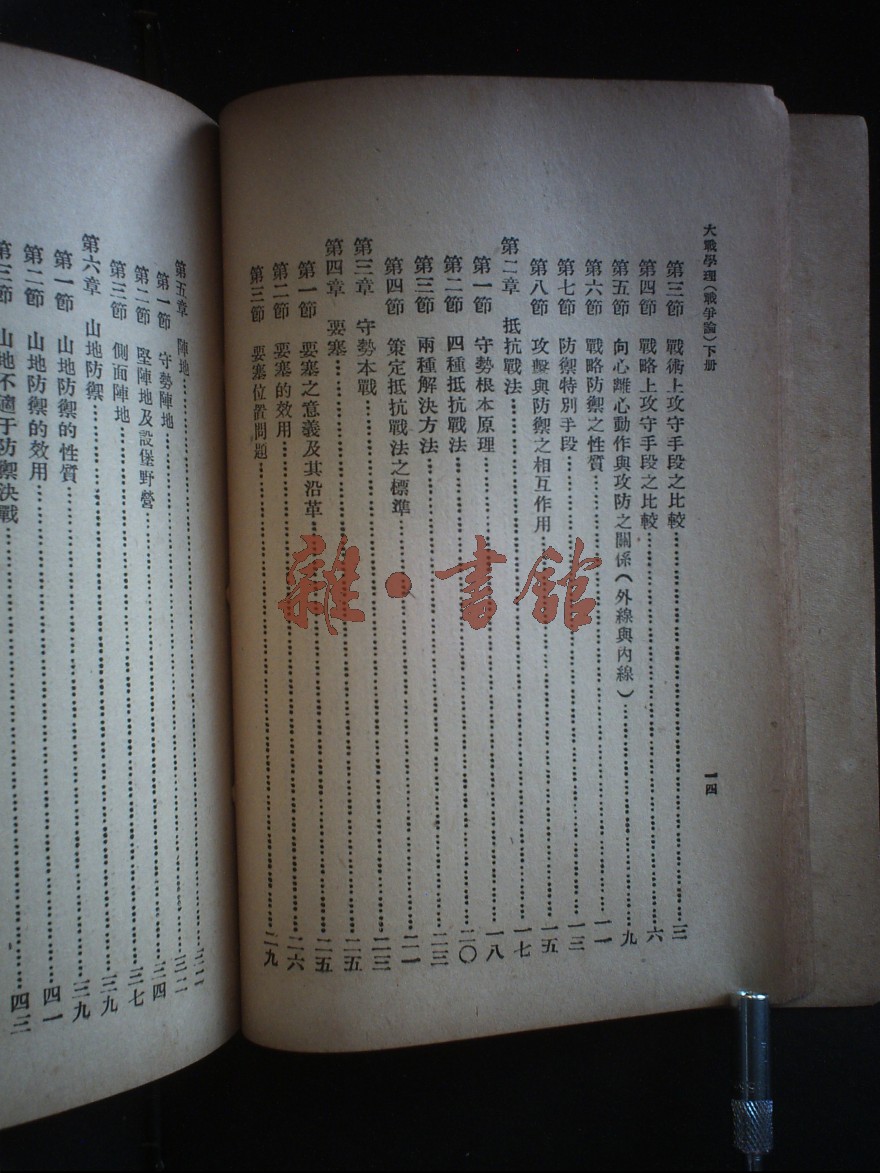 大戰學理（戰爭論）下册
一四
第三節 戰術上攻守手段之比較……三
第四節 戰略上攻守手段之比較……六
第五節 向心離心動作與攻防之關係（外線與內線）……九
第六節 戰略防禦之性質……一一
第七節 防禦特別手段……一三
第八節 攻擊與防禦之相互作用……一五
第二章 抵抗戰法……一七
第一節 守勢根本原理……一八
第二節 四種抵抗戰法……二〇
第三節 兩種解決方法……二三
第四節 策定抵抗戰法之標準……二一
第三章 守勢本戰……二三
第四章 要塞……二五
第一節 要塞之意義及其沿革……二五
第二節 要塞的效用……二六
第三節 要塞位置問題……二九
第五章 陣地……三一
第一節 守勢陣地……三二
第二節 堅陣地及設堡野營……三四
第三節 側面陣地……三七
第六章 山地防禦……三九
第一節 山地防禦的性質……三九
第二節 山地防禦的效用……四一
第三節 山地不適于防禦決戰……四三
雜·書館